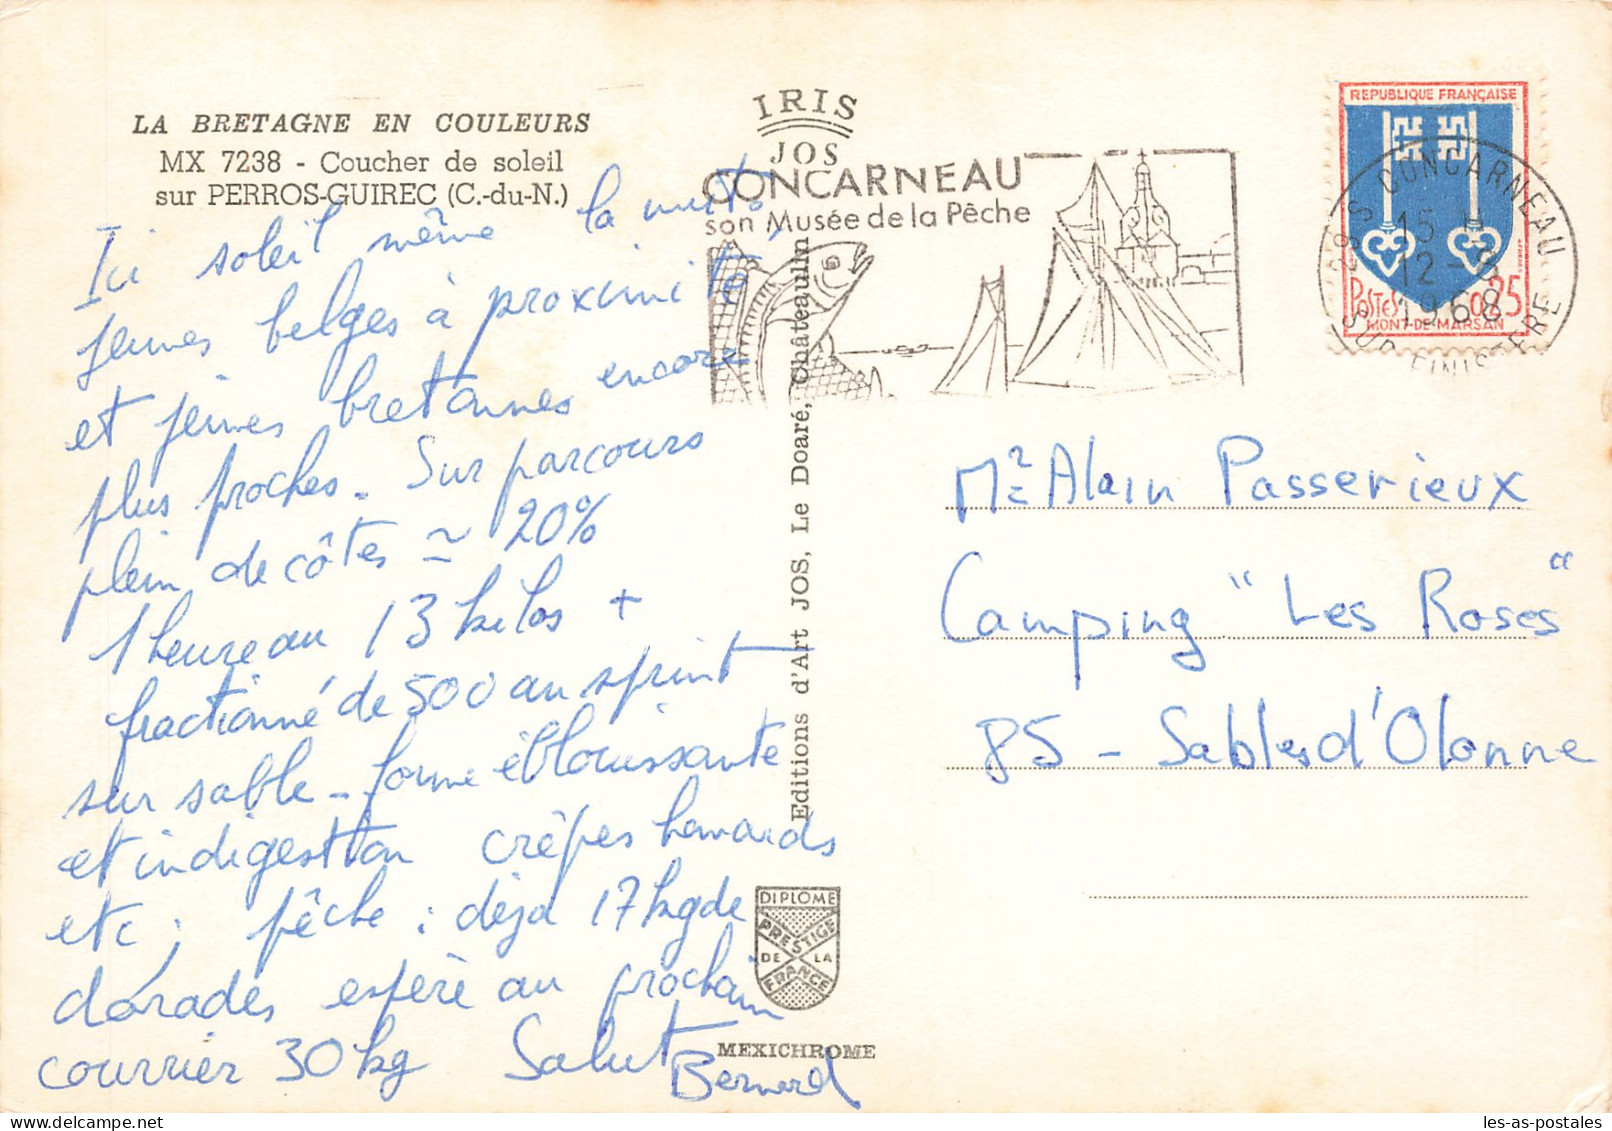 LA BRETAGNE EN COULEURS
MX 7238 - Coucher de soleil
sur PERROS-GUIREC (C.-du-N.)
Ici soleil même la nuit,
jeunes belges à proximité
et jeunes bretonnes encore
plus proches. Sur parcours
plein de côtes ≃ 20%
1 heure au 13 kilos +
fractionné de 500 au sprint
sur sable - forme éblouissante
et indigestion crêpes homards
etc ; pêche : déjà 17 kg de
dorades espère au prochain
courrier 30 kg Salut
Bernard
IRIS
JOS
CONCARNEAU
son Musée de la Pêche
Editions d'Art JOS, Le Doaré, Châteaulin
DIPLOME
PRESTIGE
DE LA
FRANCE
MEXICHROME
REPUBLIQUE FRANÇAISE
POSTES 0,25
MONT-DE-MARSAN
29 S CONCARNEAU
15 H
12 - 8
1968
SUD FINISTERE
Mr Alain Passerieux
Camping "Les Roses"
85 - Sables d'Olonne
les-as-postales